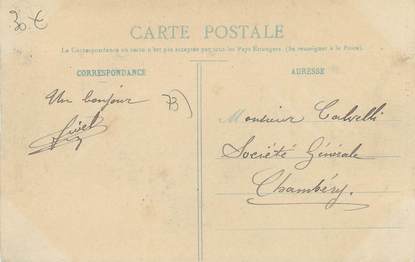 30 €
CARTE POSTALE
La Correspondance au recto n'est pas acceptée par tous les Pays Etrangers. (Se renseigner à la Poste).
CORRESPONDANCE
ADRESSE
Un bonjour
73)
Monsieur Calvelli
Société Générale
Chambéry.